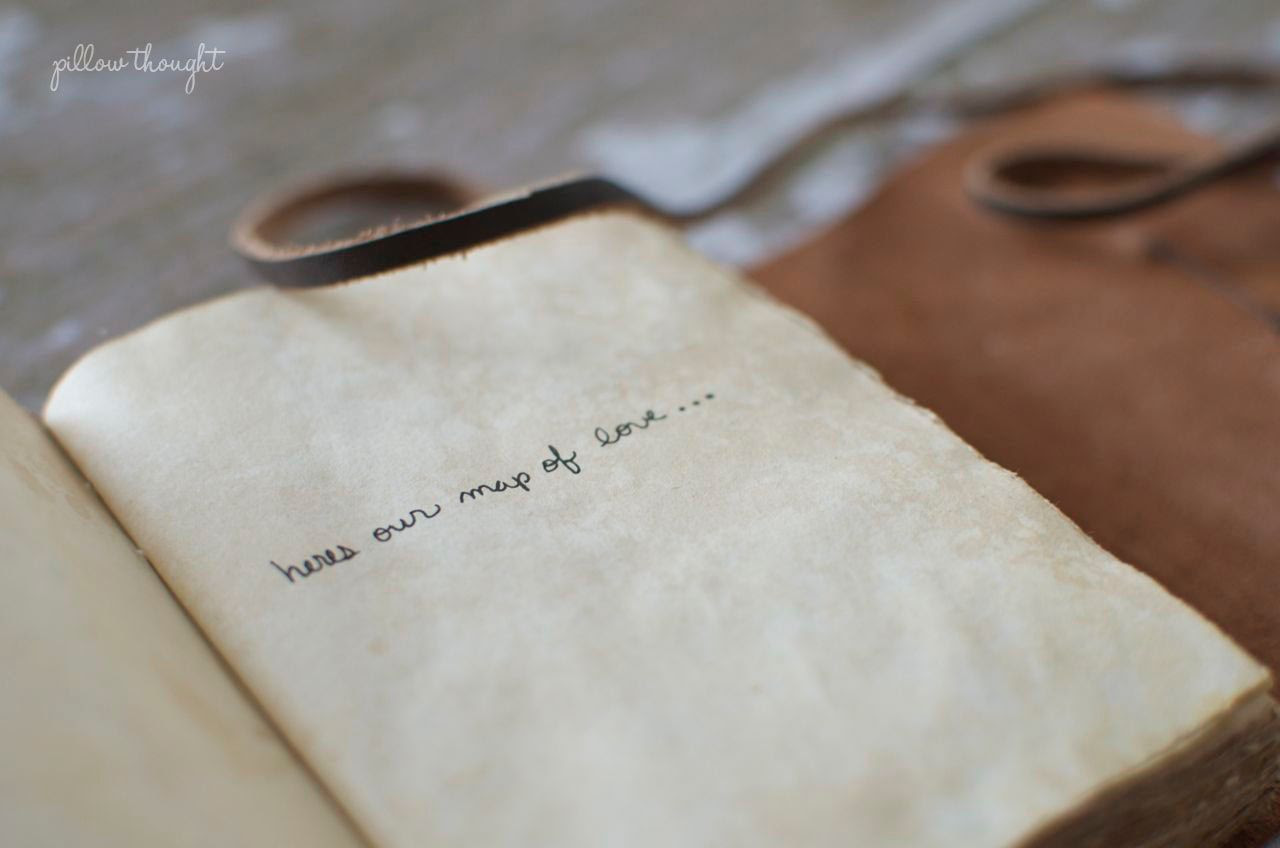 pillow thought
heres our map of love...